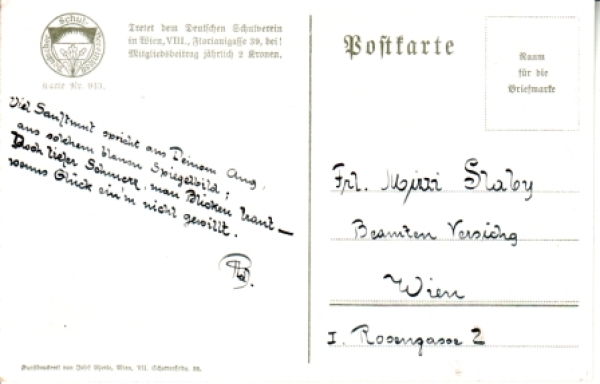 Schul-
Karte Nr. 913.
Tretet dem Deutschen Schulverein
in Wien, VIII., Florianigasse 39, bei!
Mitgliedsbeitrag jährlich 2 Kronen.
Postkarte
Raum
für die
Briefmarke
Viel Sanftmut spricht aus Deinem Aug,
aus solchem blauen Spiegelbild;
Doch tiefer Schmerz, man Blicken traut —
wenns Glück ein'm nicht gewillt.
Frl. Mizzi Slaby
Beamten Versichg
Wien
I. Rosengasse 2
Kunstdruckerei von Josef Eberle, Wien, VII.